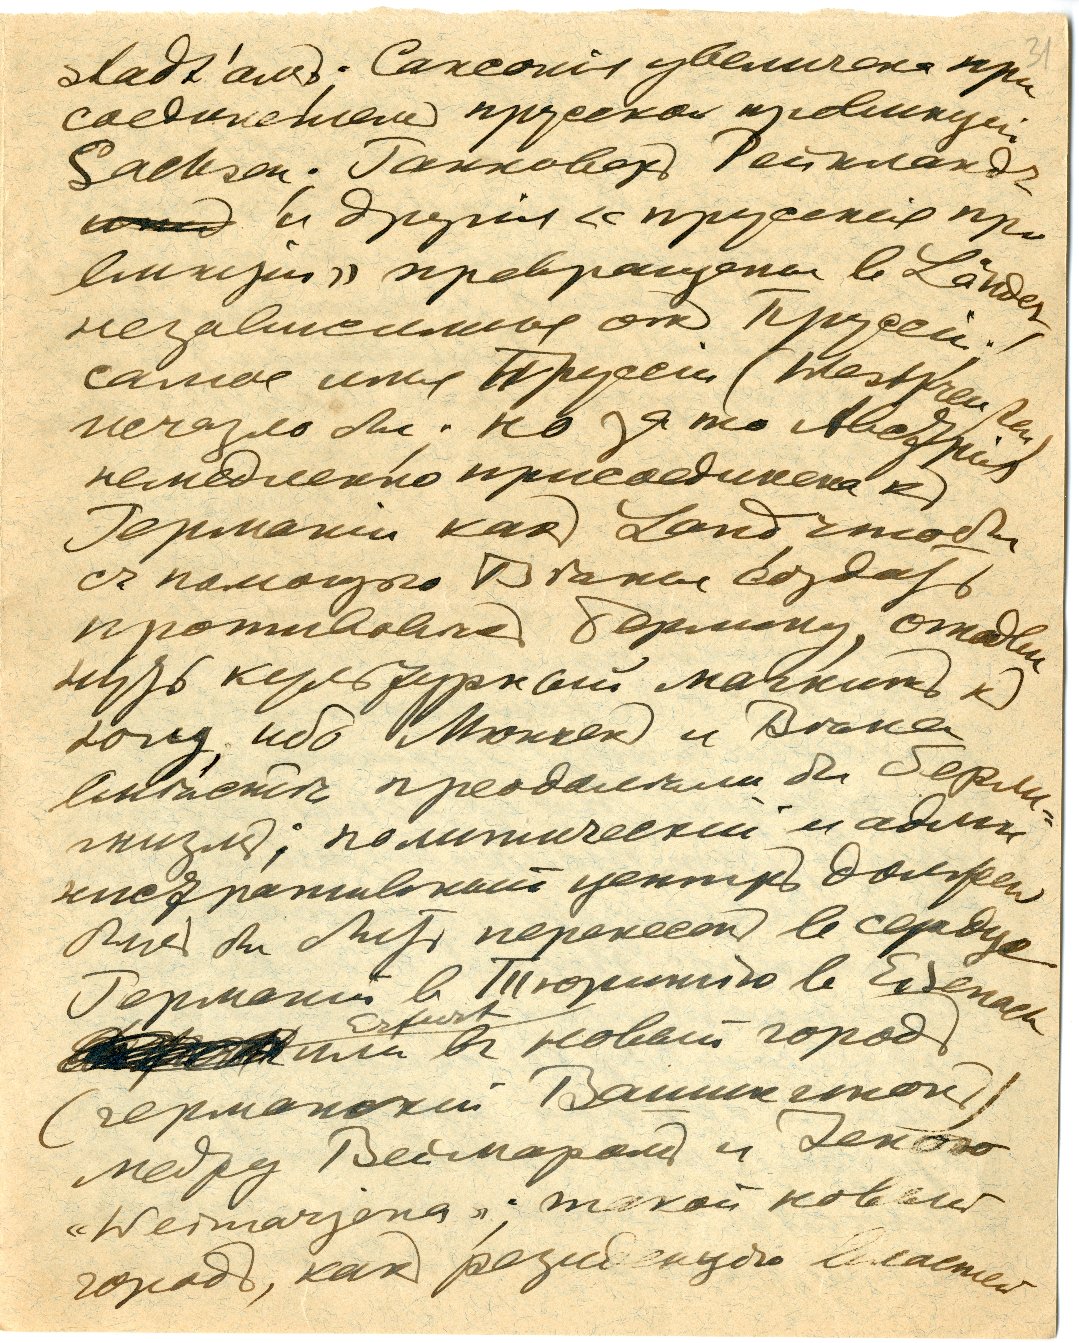 31
stadt'амъ. Саксонія увеличена при
соединеніемъ прусской провинціи
Sachsen. Ганноверъ Рейнландъ
и другія « прусскія про
винціи» превращены въ Länder
независимые отъ Пруссіи.
самое имя Пруссіи (
исчезло бы; но за то Австрія
немедленно присоединена къ
Германіи какъ Land чтобы
съ помощью Вѣны создать
противовѣсъ Берлину, отодви
нуть культурный магнитъ къ
югу, ибо Мюнхенъ и Вѣна
вмѣстѣ преодолѣли бы берли-
низмъ; политическій и адми
нистративный центръ долженъ
былъ бы быть перенесенъ въ сердце
Германіи въ Тюрингію въ Eisenach
Erfurt
или въ новый городъ
(германскій Вашингтонъ)
между Веймаромъ и Іеною
«Weimarjena»; такой новый
городъ, какъ резиденцію властей